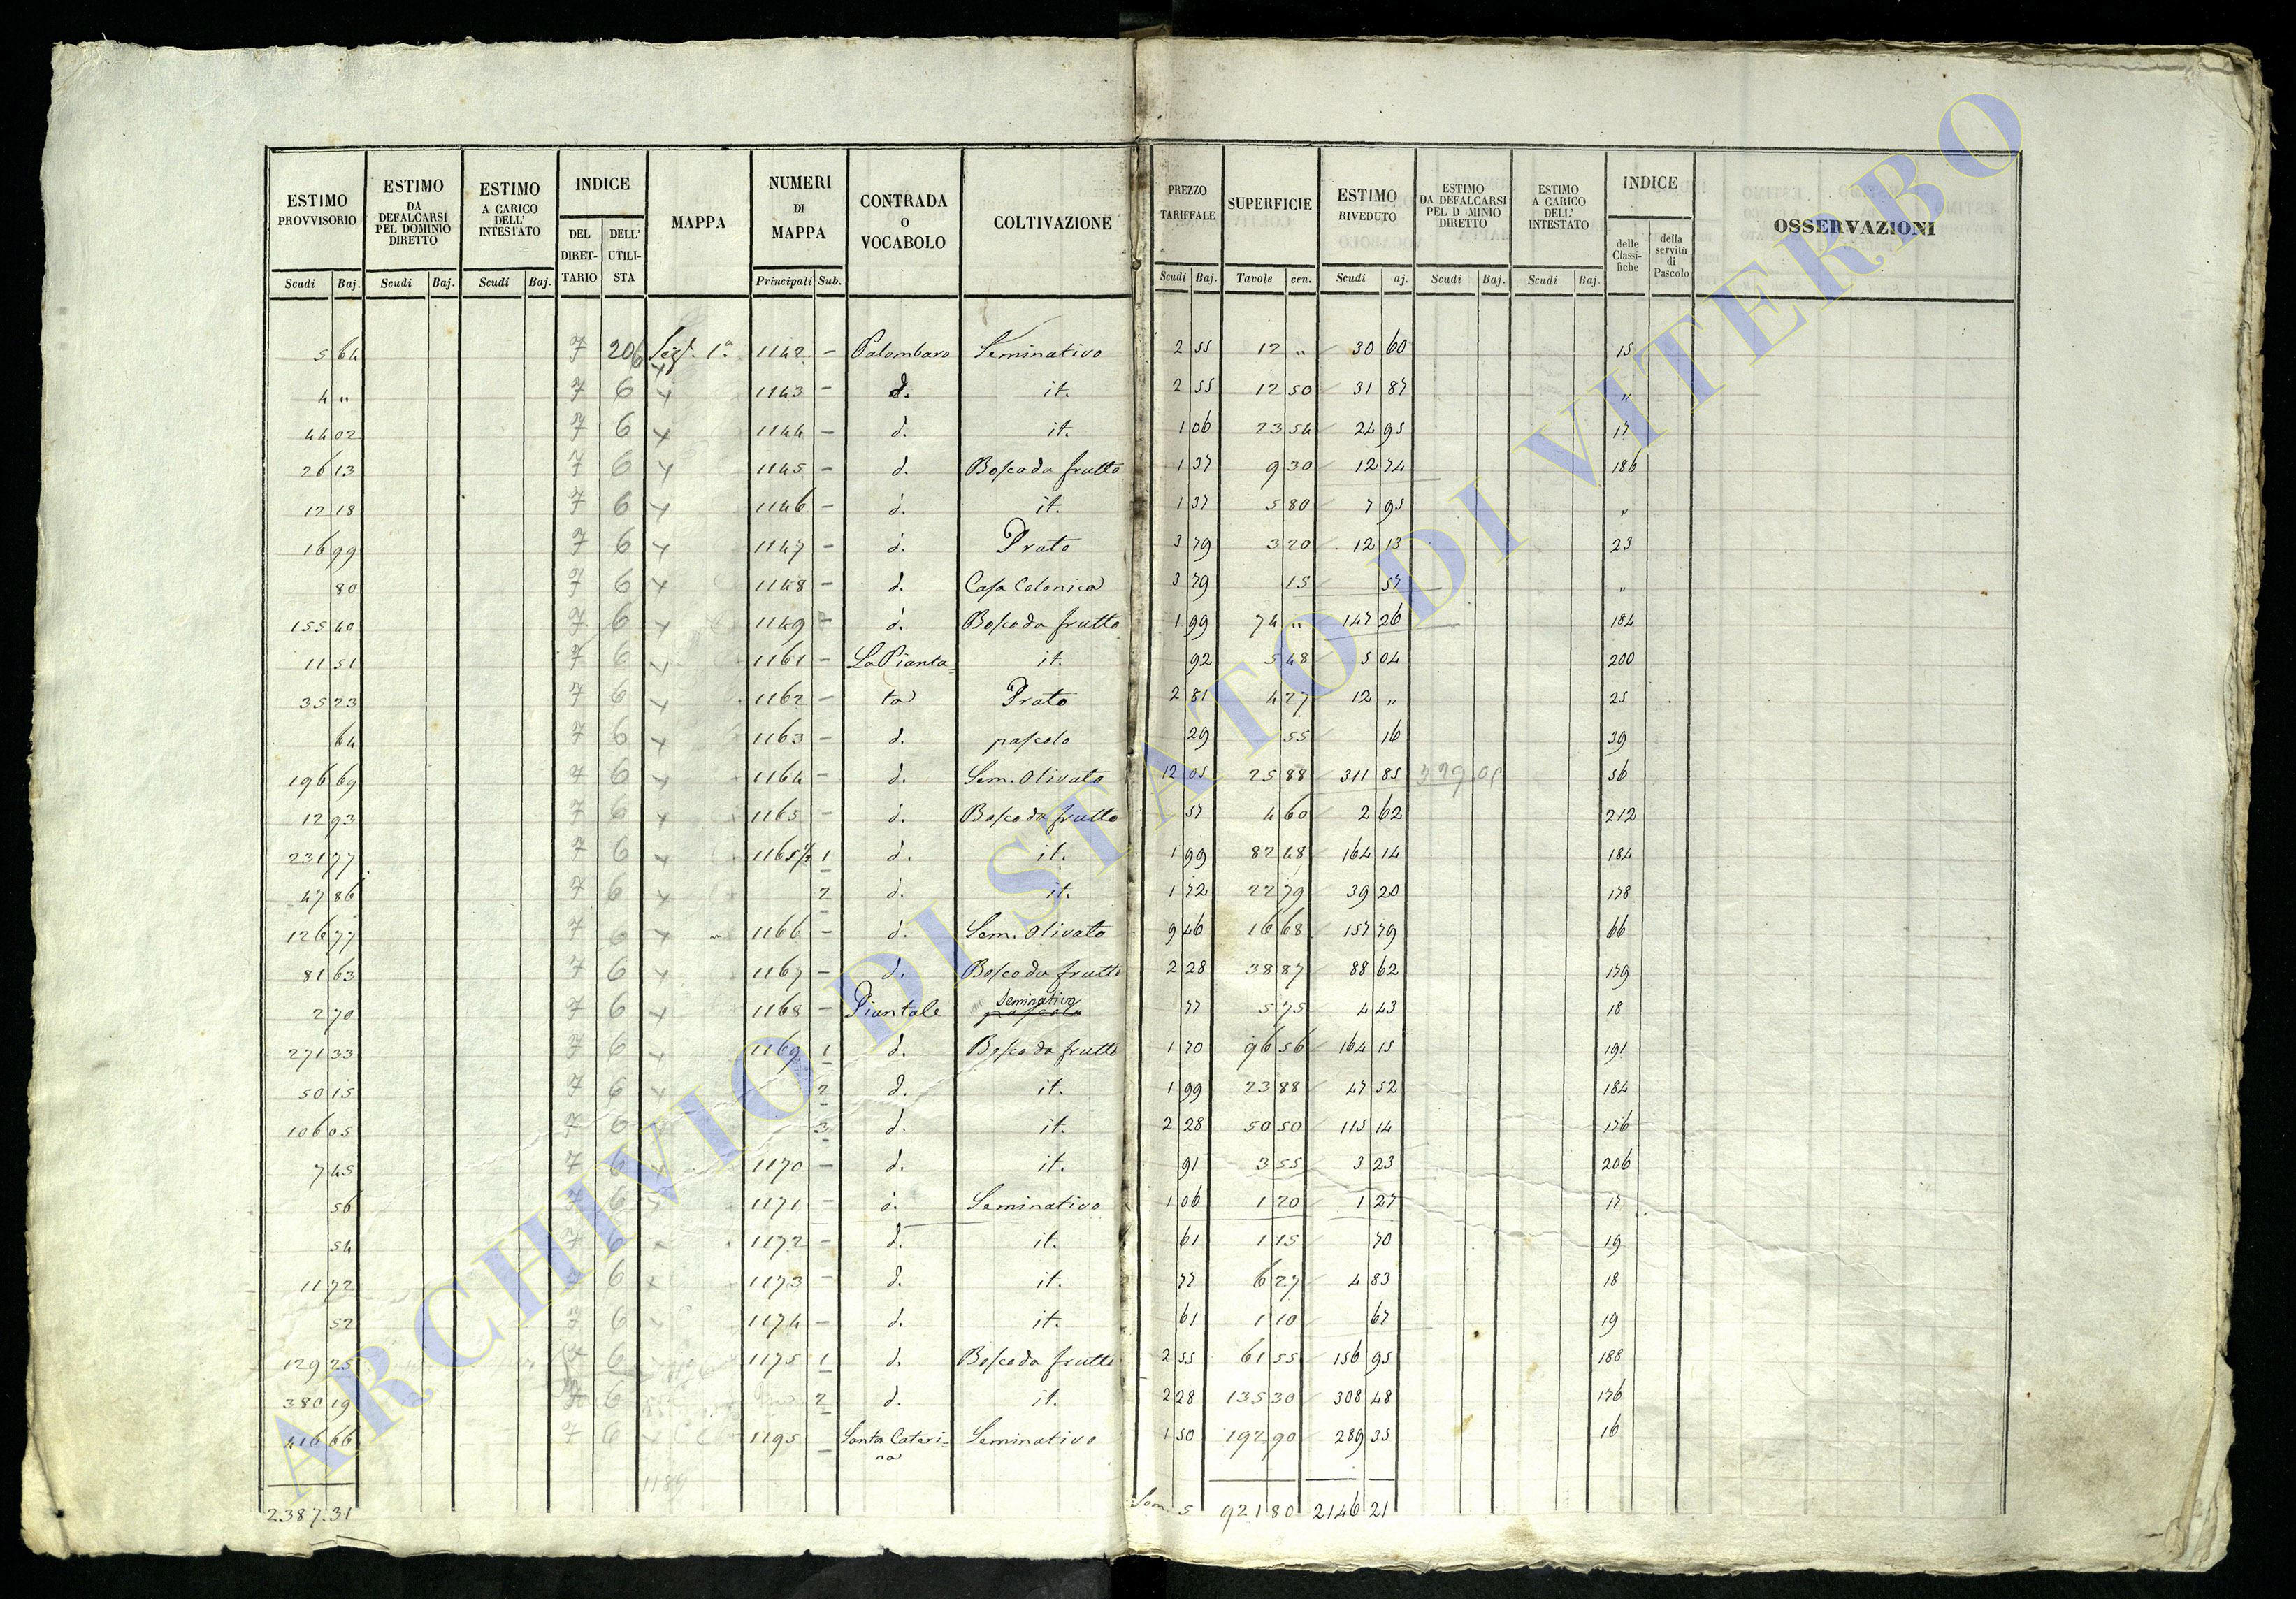 ESTIMO PROVVISORIO | ESTIMO DA DEFALCARSI PEL DOMINIO DIRETTO | ESTIMO A CARICO DELL' INTESTATO | INDICE | MAPPA | NUMERI DI MAPPA | CONTRADA O VOCABOLO | COLTIVAZIONE | PREZZO TARIFFALE | SUPERFICIE | ESTIMO RIVEDUTO | ESTIMO DA DEFALCARSI PEL D MINIO DIRETTO | ESTIMO A CARICO DELL' INTESTATO | INDICE | OSSERVAZIONI
DEL DIRETTARIO | DELL' UTILISTA | delle Classifiche | della servitù di Pascolo
Scudi | Baj. | Scudi | Baj. | Scudi | Baj. | Principali | Sub. | Scudi | Baj. | Tavole | cen. | Scudi | aj. | Scudi | Baj. | Scudi | Baj.
5 64 | 7 | 206 | Sez. 1a | 1142 - | Palombaro | Seminativo | 2 55 | 12 " | 30 60 | 15
4 " | 7 | 6 | 1143 - | d. | it. | 2 55 | 12 50 | 31 87 | "
44 02 | 7 | 6 | 1144 - | d. | it. | 1 06 | 23 54 | 24 95 | 17
26 13 | 7 | 6 | 1145 - | d. | Bosco da frutto | 1 37 | 9 30 | 12 74 | 186
12 18 | 7 | 6 | 1146 - | d. | it. | 1 37 | 5 80 | 7 95 | "
16 99 | 7 | 6 | 1147 - | d. | Prato | 3 79 | 3 20 | 12 13 | 23
80 | 7 | 6 | 1148 - | d. | Casa Colonica | 3 79 | 15 | 57 | "
155 40 | 7 | 6 | 1149 - | d. | Bosco da frutto | 1 99 | 74 " | 147 26 | 184
11 51 | 7 | 6 | 1161 - | La Pianta= | it. | 92 | 5 48 | 5 04 | 200
35 23 | 7 | 6 | 1162 - | ta | Prato | 2 81 | 4 27 | 12 " | 25
64 | 7 | 6 | 1163 - | d. | pascolo | 29 | 55 | 16 | 39
196 69 | 7 | 6 | 1164 - | d. | Sem. Olivato | 12 05 | 25 88 | 311 85 | 329 05 | 56
12 93 | 7 | 6 | 1165 - | d. | Bosco da frutto | 57 | 4 60 | 2 62 | 212
231 77 | 7 | 6 | 1165½ 1 | d. | it. | 1 99 | 82 48 | 164 14 | 184
47 86 | 7 | 6 | 2 | d. | it. | 1 72 | 22 79 | 39 20 | 178
126 77 | 7 | 6 | 1166 - | d. | Sem. Olivato | 9 46 | 16 68 | 157 79 | 66
81 63 | 7 | 6 | 1167 - | d. | Bosco da frutto | 2 28 | 38 87 | 88 62 | 179
2 70 | 7 | 6 | 1168 - | Piantale | Seminativo pascolo | 77 | 5 75 | 4 43 | 18
271 33 | 7 | 6 | 1169 1 | d. | Bosco da frutto | 1 70 | 96 56 | 164 15 | 191
50 15 | 7 | 6 | 2 | d. | it. | 1 99 | 23 88 | 47 52 | 184
106 05 | 7 | 6 | 3 | d. | it. | 2 28 | 50 50 | 115 14 | 176
7 45 | 7 | 6 | 1170 - | d. | it. | 91 | 3 55 | 3 23 | 206
56 | 7 | 6 | 1171 - | d. | Seminativo | 1 06 | 1 20 | 1 27 | 17
54 | 7 | 6 | 1172 - | d. | it. | 61 | 1 15 | 70 | 19
11 72 | 7 | 6 | 1173 - | d. | it. | 77 | 6 27 | 4 83 | 18
52 | 7 | 6 | 1174 - | d. | it. | 61 | 1 10 | 67 | 19
129 25 | 7 | 6 | 1175 1 | d. | Bosco da frutto | 2 55 | 61 55 | 156 95 | 188
380 19 | 6 | 2 | d. | it. | 2 28 | 135 30 | 308 48 | 176
416 66 | 7 | 6 | 1195 - | Santa Cateri-na | Seminativo | 1 50 | 192 90 | 289 35 | 16
1189
2387.31 | 921 80 | 2146 21
ARCHIVIO DI STATO DI VITERBO